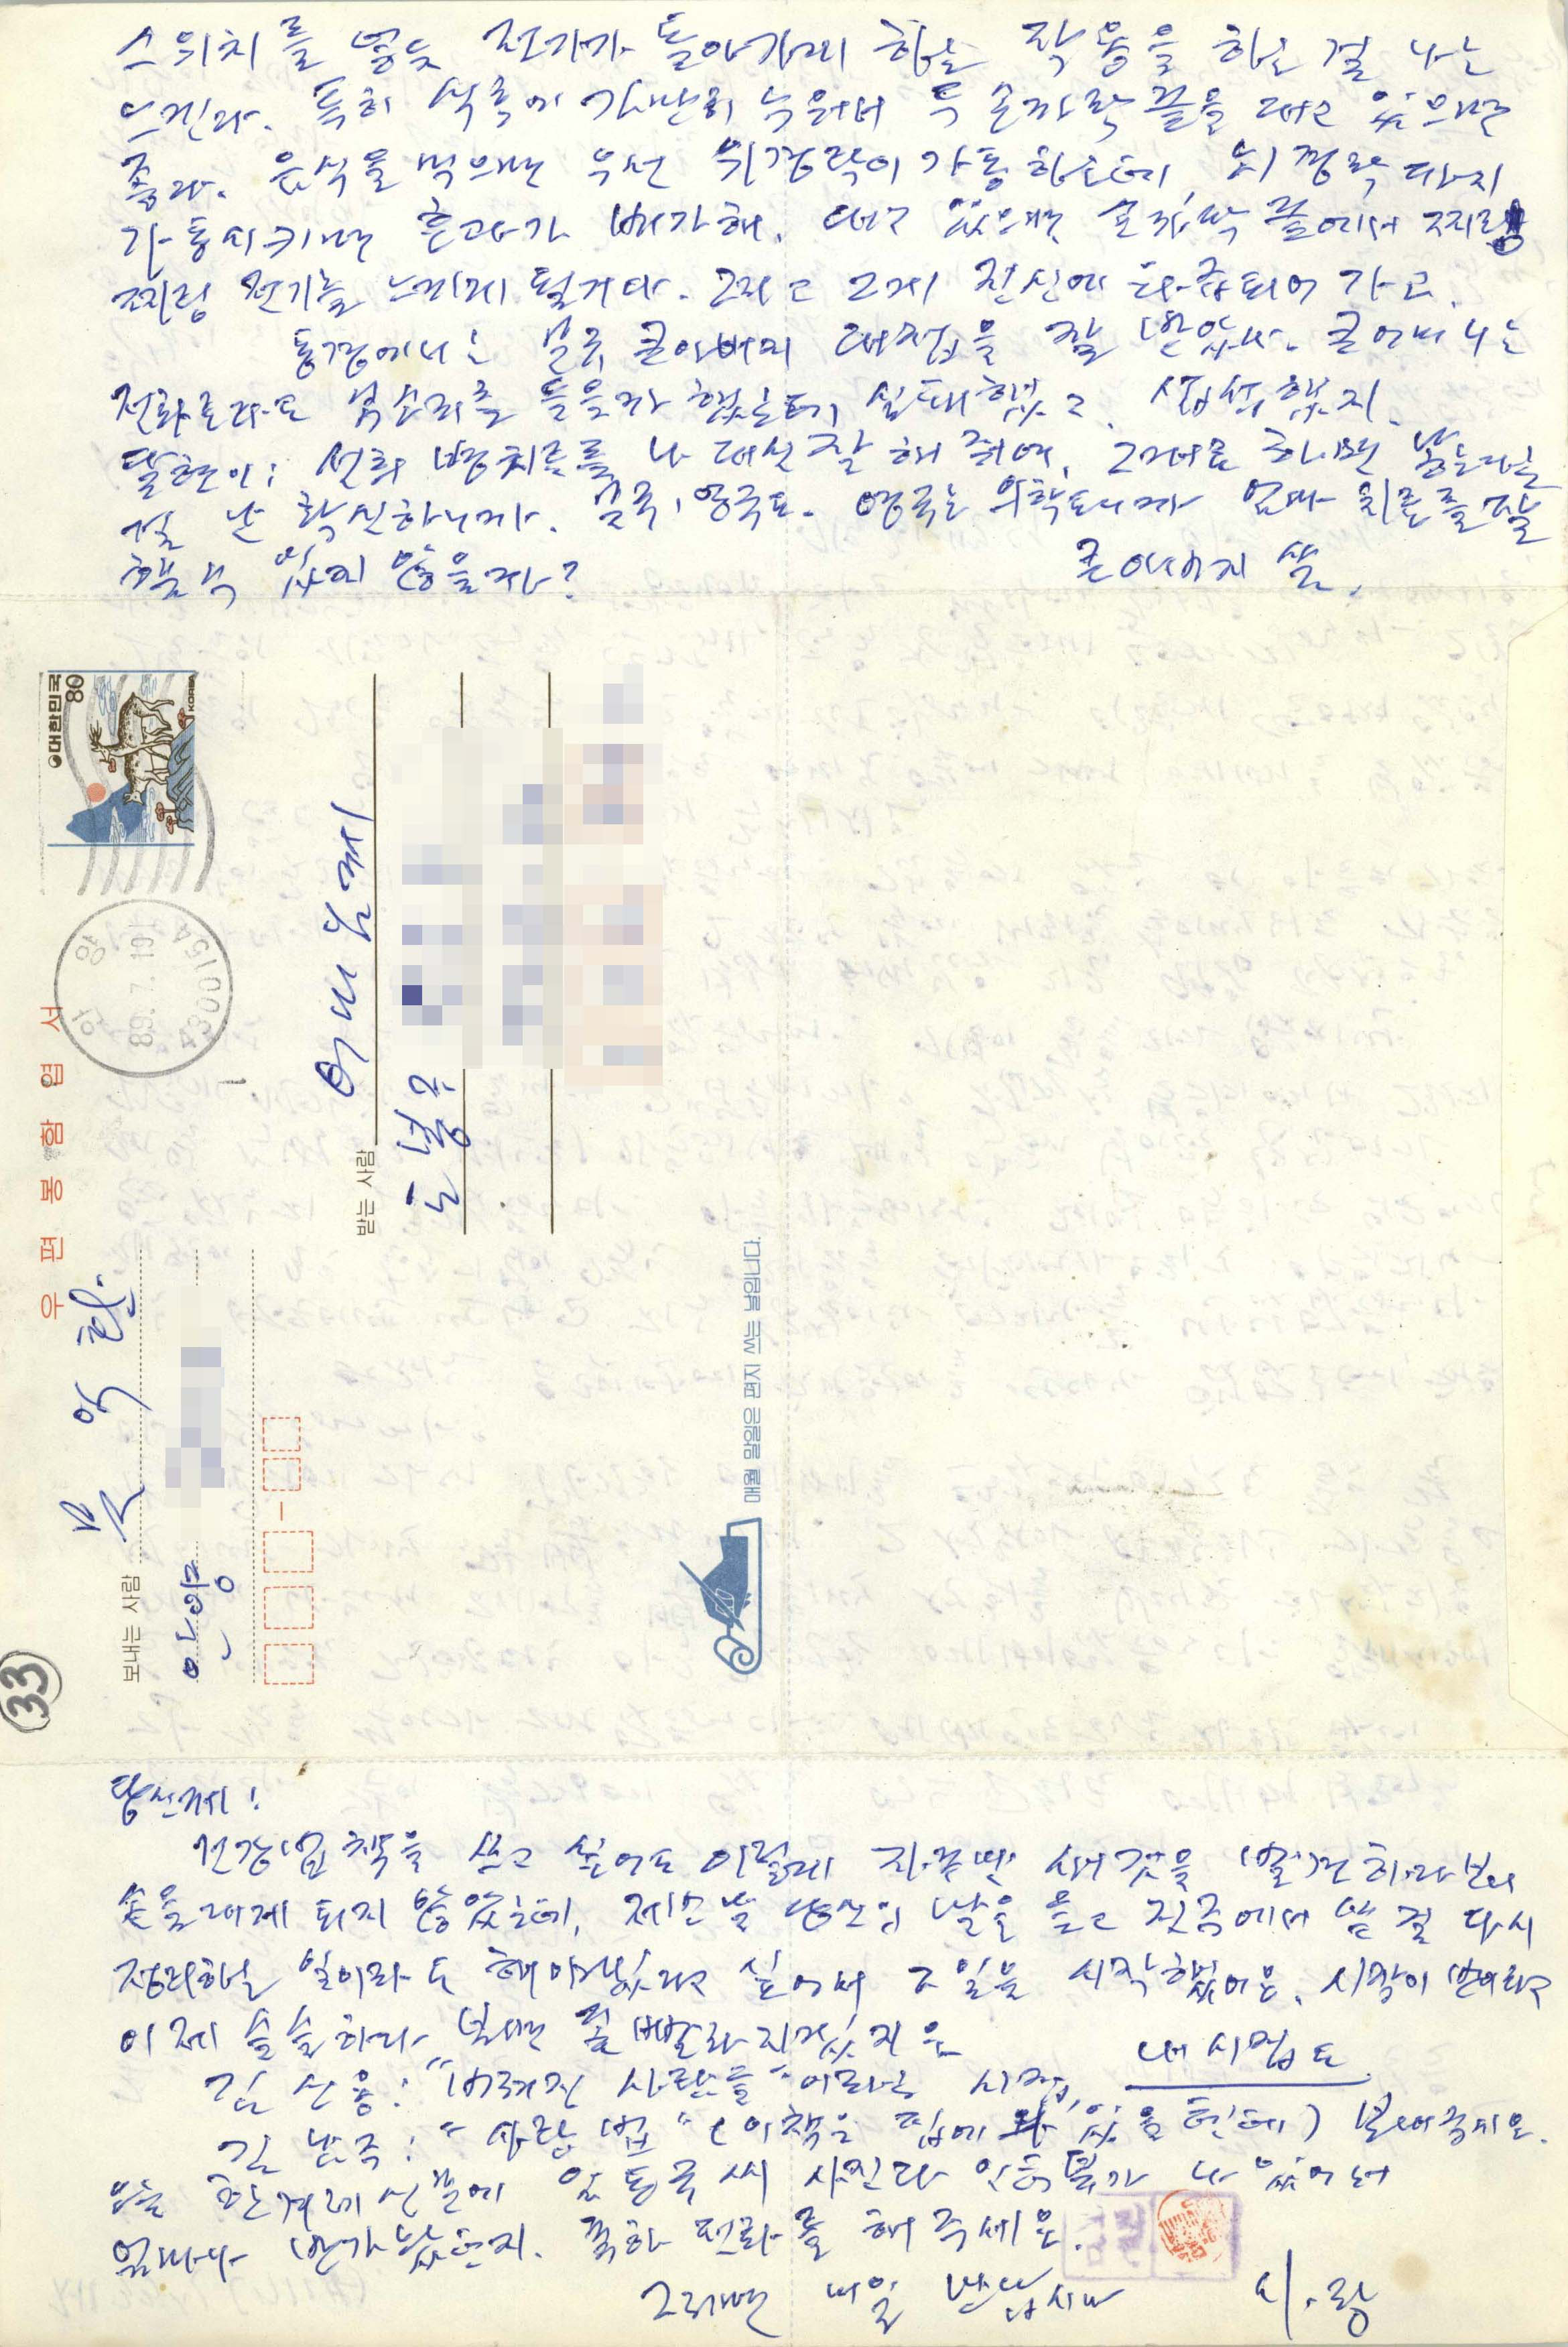 스위치를 넣듯 전기가 돌아가게 하는 작용을 하는 걸 나는
느낀다. 특히 식후에 가만히 누워서 두 손가락 끝을 대고 있으면
좋다. 음식을 먹으면 우선 위경락이 가동하는데, 뇌경락까지
가동시키면 효과가 배가해. 대고 있으면 손가락 끝에서 찌링
찌링 전기를 느끼게 될거다. 그리고 그게 전신에 확산되어 가고.
통경에서는 큰아버지 대접을 잘 받았다. 큰어머니는
전화로라도 목소리를 들을까 했는데, 실패했고, 섭섭했지.
달현이: 선희 병치료를 나 대신 잘 해 줘여, 그대로 하면 낫는다는
걸 난 확신하니까. 영국도. 영국는 의학도니까 엄마 치료를 잘
해줄 수 있지 않을까?
큰아버지 씀.
대한민국
80
KOREA
안양
89.7.10
430015A
우편봉함엽서
보내는 사람
문익환
안양
받는 사람
어머님께
도봉구
매월 말일은 편지 쓰는 날입니다.
33
당신께!
건강법 책을 쓰고 싶어도 이렇게 자꾸만 새것을 발견하다 보니
손을 대게 되지 않았는데, 제번 날 당신의 말을 듣고 전주에서 쓴 걸 다시
정리하는 일이라도 해야겠다고 싶어서 그 일을 시작했어요. 시작이 반이라고
이제 슬슬하다 보면 좀 빨라지겠지요
김신용: "버려진 사람들"이라는 시집, 내 시집도
김남주: "사랑법" (이 책은 집에 와 있을 텐데) 보내주세요.
오늘 한겨레신문에 임동규씨 사진과 인터뷰가 나 있어서
얼마나 반가웠던지. 축하 전화를 해 주세요.
그러면 내일 만납시다 늦.봄